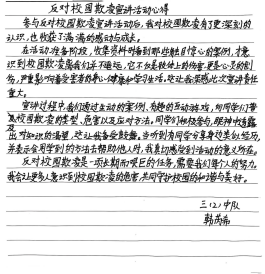 反对校园欺凌宣讲活动心得
参与反对校园欺凌宣讲活动后,我对校园欺凌有了更深刻的
认识,也收获了满满的感动与成长。
在活动准备阶段,收集资料时看到那些触目惊心的案例,才意
识到校园欺凌离我们并不遥远,它不仅是肢体上的伤害,更是心灵的创
伤,严重影响着受害者的身心健康和学习生活,这让我深感此次宣讲责任
重大。
宣讲过程中,我们通过生动的案例、有趣的互动游戏,向同学们普
及校园欺凌的类型、危害以及应对方法。同学们积极参与,眼神中透露
出对知识的渴望,这让我备受鼓舞。当听到有同学分享身边类似经历,
并表示会用学到的方法去帮助他人时,我真切感受到活动的意义所在。
反对校园欺凌是一项长期而艰巨的任务,需要我们每个人的努力。
我会让更多人意识到校园欺凌的危害,共同守护校园的和谐与美好。
三(2)中队
韩芮希